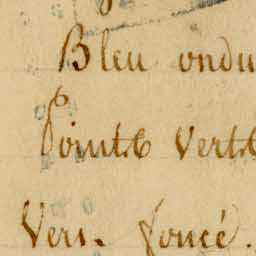 Bleu ondu
Pointcs Verts
Vers. foncé.